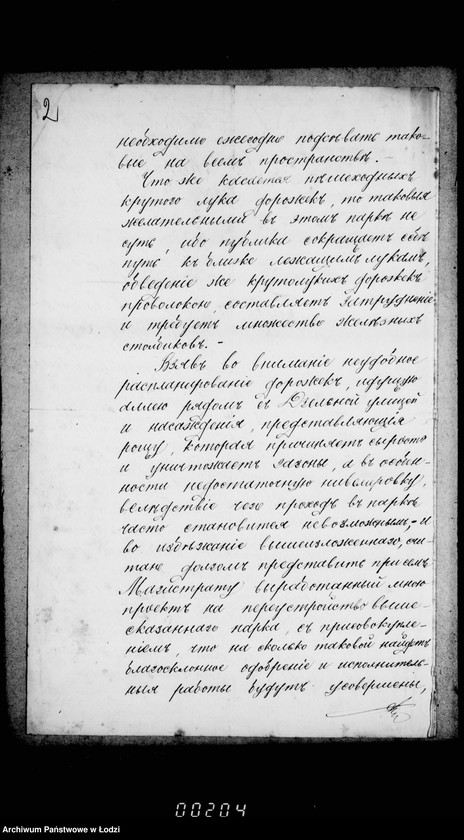 2
необходимо ежегодно подсѣвать тако-
вые на всемъ пространствѣ. -
Что же касается пѣшеходныхъ
крутого лука дорожекъ, то таковыя
желательными въ этомъ паркѣ не
суть, ибо публика сокращаетъ себѣ
путь къ близже лежащимъ лукамъ,
обведеніе же крутолукихъ дорожекъ
проволокою, составляетъ затрудненіе
и требуетъ множество желѣзныхъ
столбиковъ. -
Взявъ во вниманіе неудобное
распланированіе дорожекъ, идущую
аллею рядомъ съ Дзельной улицей
и насажденія, представляющія
рощу, которая причиняетъ сырость
и уничтожаетъ газоны, а въ особен-
ности недостаточную нивелировку,
вслѣдствіе чего проходъ въ паркѣ
часто становится невозможнымъ, - и
во избѣжаніе вышеизложеннаго, счи-
таю долгомъ представить при семъ
Магистрату выработанный мною
проектъ на переустройство выше-
сказаннаго парка, съ присовокупле-
ніемъ, что на сколько таковой найдетъ
благосклонное одобреніе и исполнитель-
ныя работы будутъ усовершены,
00204
Archiwum Państwowe w Łodzi